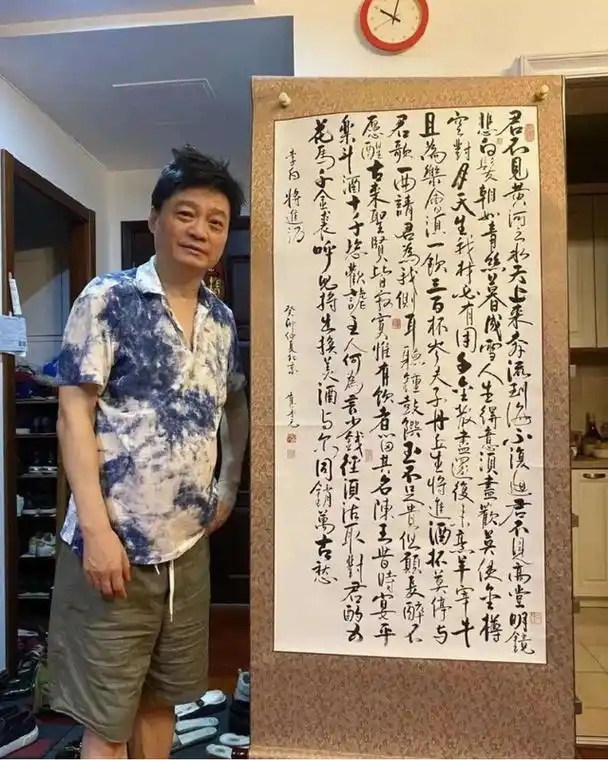 君不見黃河之水天上來奔流到海不復迴君不見高堂明鏡
悲白髮朝如青絲暮成雪人生得意須盡歡莫使金樽
空對月天生我材必有用千金散盡還復來烹羊宰牛
且為樂會須一飲三百杯岑夫子丹丘生將進酒杯莫停與
君歌一曲請君為我側耳聽鐘鼓饌玉不足貴但願長醉不
愿醒古來聖賢皆寂寞惟有飲者留其名陳王昔時宴平
樂斗酒十千恣歡謔主人何為言少錢徑須沽取對君酌五
花馬千金裘呼兒將出換美酒與尔同銷萬古愁
李白 將進酒
癸卯仲夏北京 崔永元